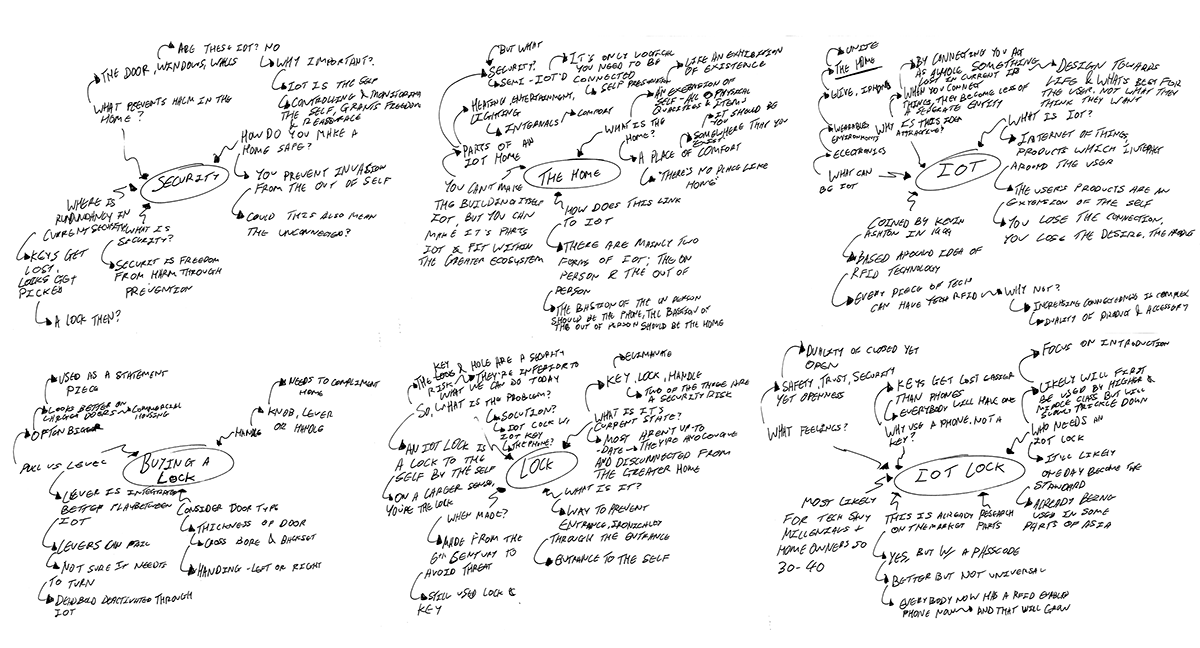 ARE THESE IOT? NO
THE DOOR, WINDOWS, WALLS
WHAT PREVENTS HARM IN THE
HOME?
WHY IMPORTANT?
IOT IS THE SELF
CONTROLLING & MONITORING
THE SELF, GRANTS FREEDOM
& REASSURACE
HOW DO YOU MAKE A
HOME SAFE?
YOU PREVENT INVASION
FROM THE OUT OF SELF
COULD THIS ALSO MEAN
THE UNCONNECTED?
SECURITY
WHERE IS
REDUNDANCY IN
CURRENT SECURITY?
KEYS GET
LOST,
LOCKS GET
PICKED
A LOCK THEN?
WHAT IS
SECURITY?
SECURIT IS FREEDOM
FROM HARM THROUGH
PREVENTION
BUT WHAT
SECURITY,
SEMI-IOT'D
IT'S ONLY LOGICAL
YOU NEED TO BE
CONNECTED
HEATING, ENTERTAINMENT,
LIGHTING
INTERNALS
COMFORT
PARTS OF AN
IOT HOME
YOU CAN'T MAKE
THE BUILDING ITSELF
IOT, BUT YOU CAN
MAKE IT'S PARTS
IOT & FIT WITHIN
THE GREATER ECOSYSTEM
LIKE AN EXHIBITION
OF EXISTENCE
SELF PRESERVED
AN EXTENSION OF
SELF - ALL PHYSICAL
& ITEMS
IT SHOULD BE
YOU
WHAT IS THE
HOME?
SOMEWHERE THAT YOU
EXIST
A PLACE OF COMFORT
"THERE'S NO PLACE LIKE
HOME"
THE HOME
HOW DOES THIS LINK
TO IOT
THERE ARE MAINLY TWO
FORMS OF IOT; THE ON
PERSON & THE OUT OF
PERSON
THE BASTION OF THE ON PERSON
SHOULD BE THE PHONE, THE BASTION OF
THE OUT OF PERSON SHOULD BE THE HOME
UNITE
THE HOME
HIVE, IPHONE
WEARABLES
ENVIRONMENTS
ELECTRONICS
WHAT CAN
BE IOT
BY CONNECTING YOU ACT
AS A WHOLE, SOMETHING
LOST IN CURRENT IOT
WHEN YOU CONNECT
THINGS, THEY BECOME LESS OF
A SEPERATE ENTITY
WHY IS THIS IDEA
ATTRACTIVE?
DESIGN TOWARDS
LIFE & WHATS BEST FOR
THE USER, NOT WHAT THEY
THINK THEY WANT
WHAT IS IOT?
INTERNET OF THINGS,
PRODUCTS WHICH INTERACT
AROUND THE USER
THE USERS PRODUCTS ARE AN
EXTENSION OF THE SELF
YOU LOSE THE CONNECTION,
YOU LOSE THE DESIRE, THE
IOT
COINED BY KEVIN
ASHTON IN 1999
BASED AROUND IDEA OF
RFID TECHNOLOGY
EVERY PIECE OF TECH
CAN HAVE TECH RFID
WHY NOT?
INCREASING CONNECTEDNESS IS COMPLEX
DUALITY OF PRODUCT & ACCESSORY
USED AS A STATEMENT
PIECE
LOOKS BETTER ON
LARGER DOORS
COMMERCIAL
HOUSING
OFTEN BIGGER
PULL VS LEVEL
NEEDS TO COMPLIMENT
HOME
KNOB, LEVER
OR HANDLE
HANDLE
BUYING A
LOCK
LEVER IS INTEGRATED
BETTER PLAY BETWEEN
IOT
LEVERS CAN FAIL
NOT SURE IF NEEDS
TO TURN
DEADBOLD DEACTIVATED THROUGH
IOT
CONSIDER DOOR TYPE
THICKNESS OF DOOR
CROSS BORE & BACKSET
HANDING - LEFT OR RIGHT
THE KEY & HOLE ARE A SECURITY
RISK
THEY'RE INFERIOR TO
WHAT WE CAN DO TODAY
SO, WHAT IS THE PROBLEM?
SOLUTION?
IOT LOCK W/
IOT KEY
THE PHONE?
AN IOT LOCK IS
A LOCK TO THE
SELF BY THE SELF
ON A LARGER SENSE,
YOU'RE THE LOCK
ELIMINATE
KEY, LOCK, HANDLE
TWO OF THE THREE ARE
A SECURITY RISK
WHAT IS IT'S
CURRENT STATE?
MOST AREN'T UP-TO
-DATE
THEY'RE ANALOGUE
AND DISCONNECTED FROM
THE GREATER HOME
LOCK
WHAT IS IT?
WAY TO PREVENT
ENTRANCE, IRONICALLY
THROUGH THE ENTRANCE
ENTRANCE TO THE SELF
WHEN MADE?
MADE FROM THE
6TH CENTURY TO
AVOID THREAT
STILL USED LOCK &
KEY
DUALITY OF CLOSED YET
OPEN
SAFETY, TRUST, SECURITY
YET OPENNESS
WHAT FEELINGS?
KEYS GET LOST EASIER
THAN PHONES
EVERYBODY WILL HAVE ONE
WHY USE A PHONE, NOT A
KEY?
FOCUS ON INTRODUCTION
LIKELY WILL FIRST
BE USED BY HIGHER &
MIDDLE CLASS BUT WILL
SLOWLY TRICKLE DOWN
WHO NEEDS AN
IOT LOCK
IT'LL LIKELY
ONE DAY BECOME THE
STANDARD
ALREADY BEING
USED IN SOME
PARTS OF ASIA
IOT LOCK
MOST LIKELY
FOR TECH SAVY
MILLENIALS &
HOME OWNERS SO
30-40
THIS IS ALREADY
ON THE MARKET
RESEARCH
PARTS
YES, BUT W/ A PASSCODE
BETTER BUT NOT UNIVERSAL
EVERYBODY NOW HAS A RFID ENABLED
PHONE NOW
AND THAT WILL GROW